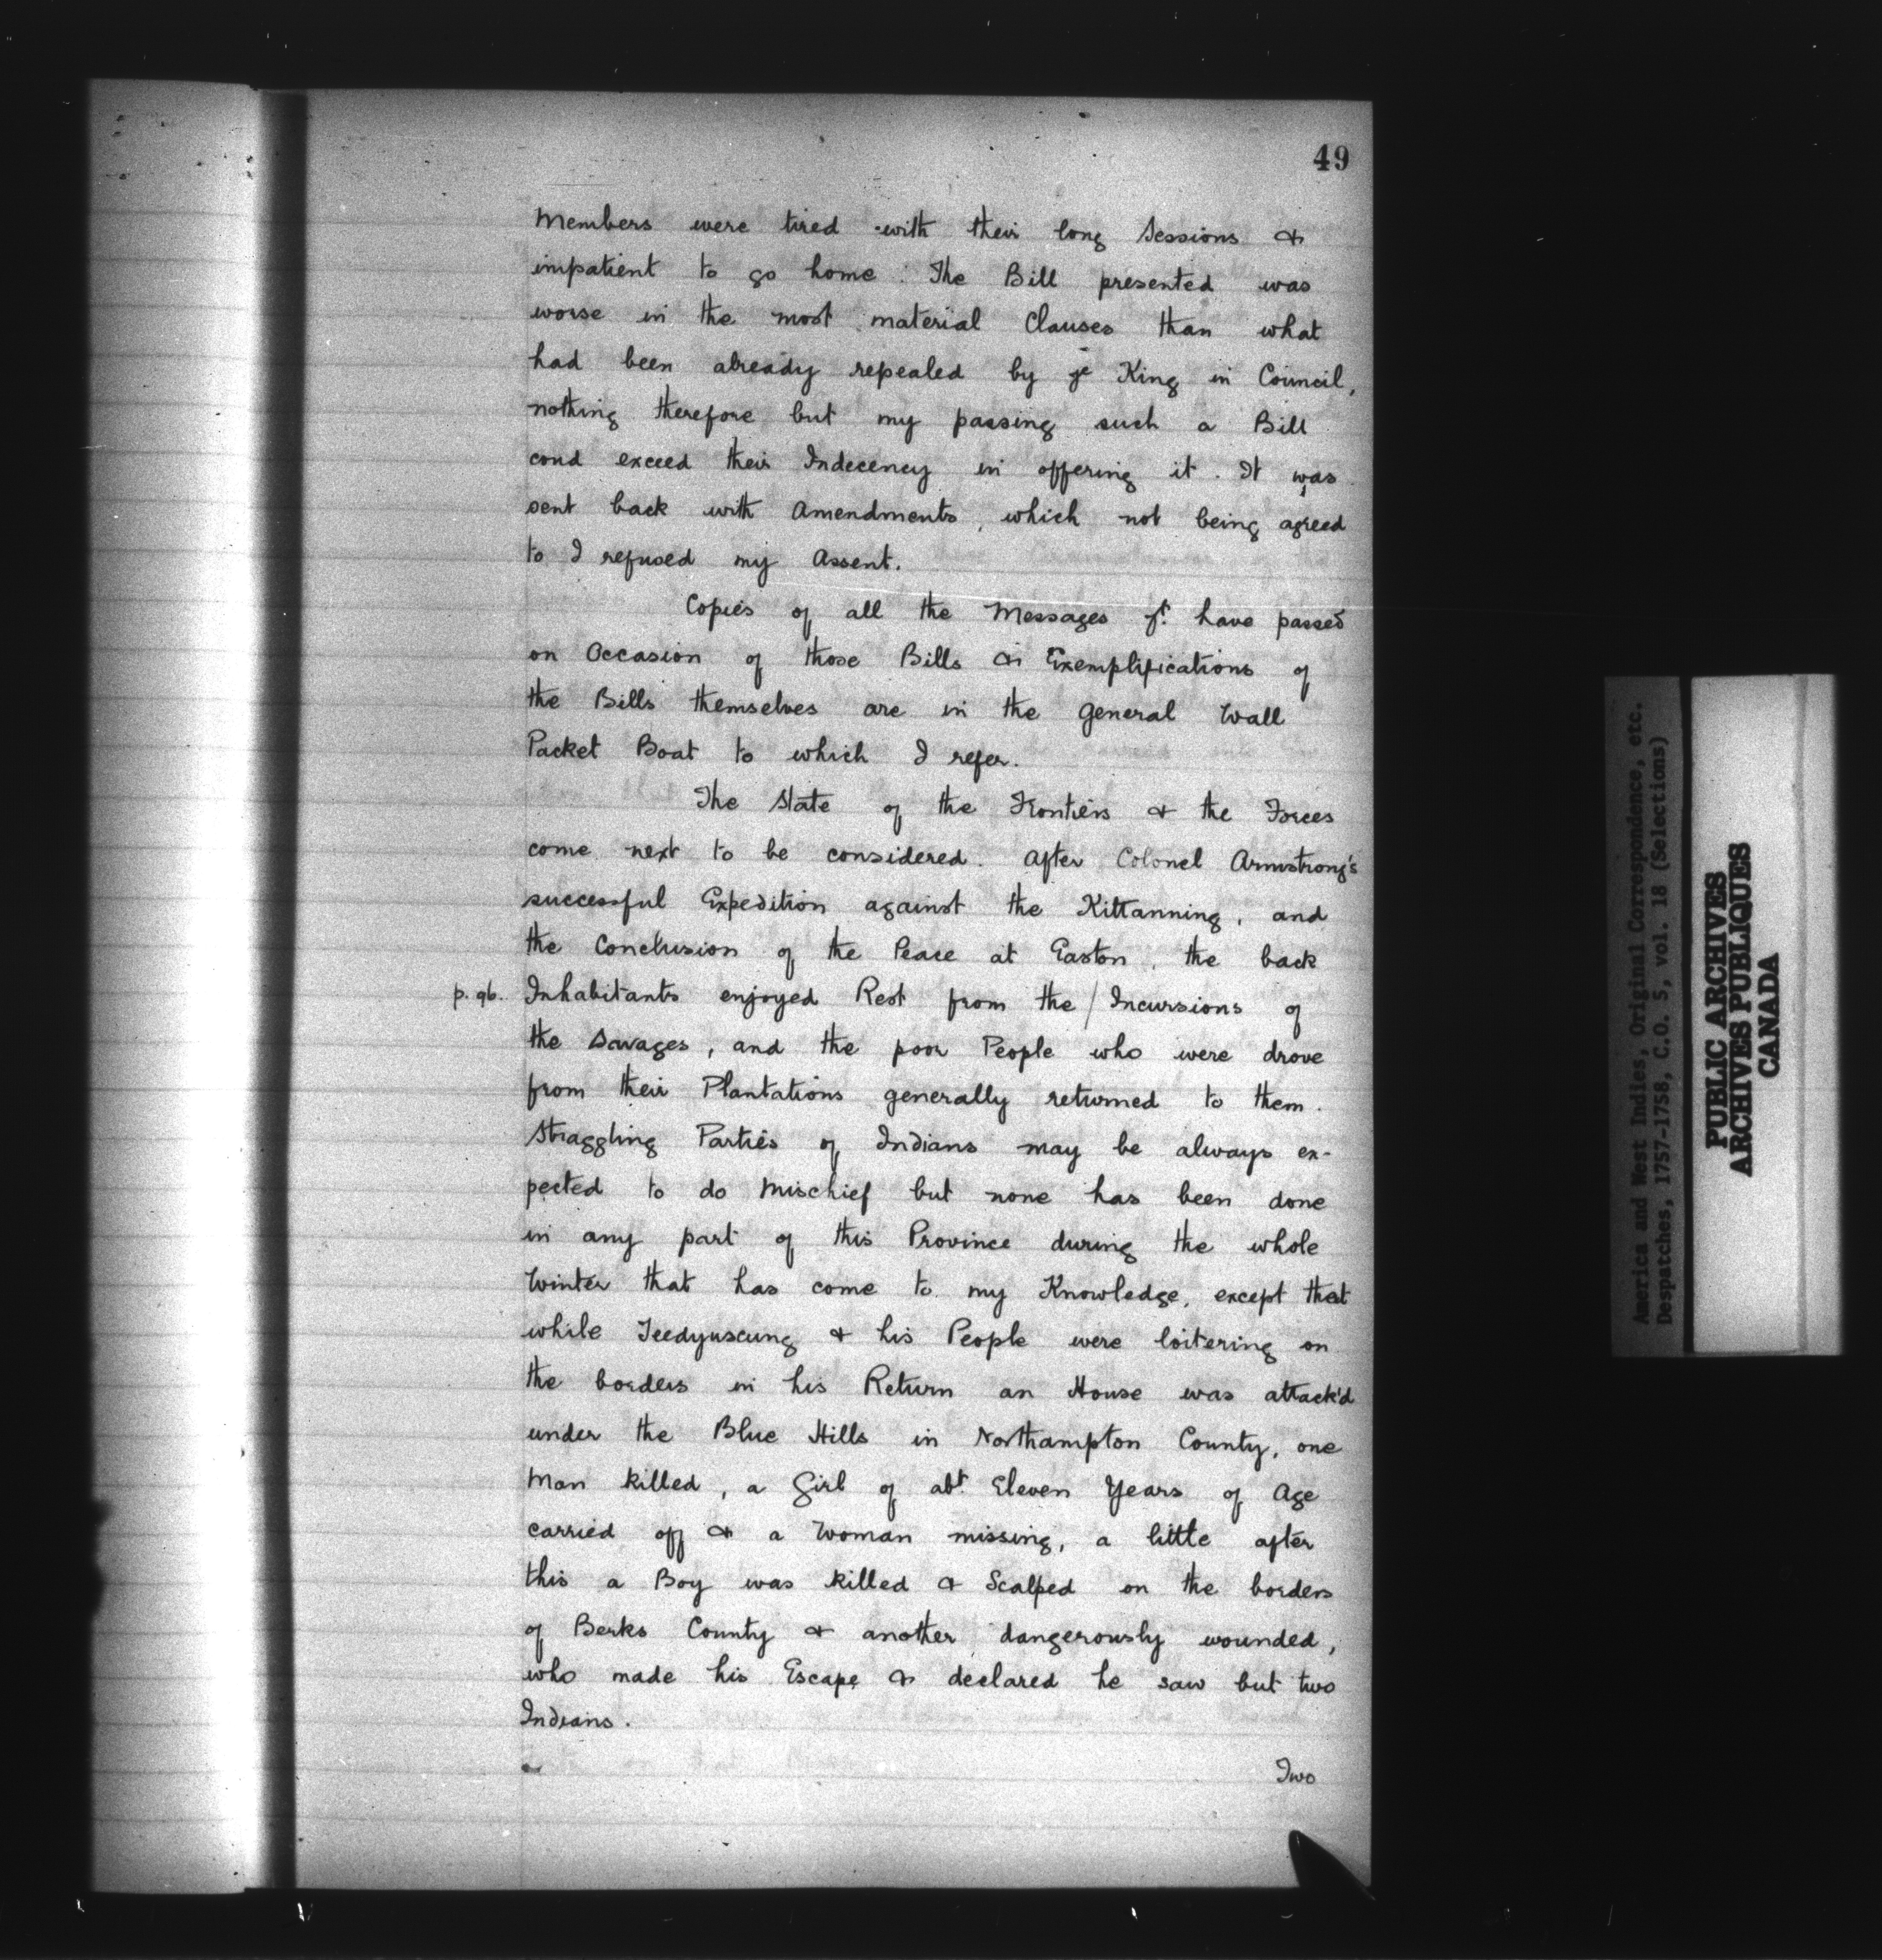 49
Members were tired with their long Sessions &
impatient to go home. The Bill presented was
worse in the most material Clauses than what
had been already repealed by ye King in Council,
nothing therefore but my passing such a Bill
coud exceed their Indecency in offering it. It was
sent back with Amendments, which not being agreed
to I refused my Assent.
Copies of all the Messages yt. have passed
on Occasion of those Bills & Exemplifications of
the Bills themselves are in the General Wall
Packet Boat to which I refer.
The State of the Frontiers & the Forces
come next to be considered. After Colonel Armstrong's
successful Expedition against the Kittanning, and
the Conclusion of the Peace at Easton, the back
p. 96. Inhabitants enjoyed Rest from the / Incursions of
the Savages, and the poor People who were drove
from their Plantations generally returned to them.
Straggling Parties of Indians may be always ex-
pected to do Mischief but none has been done
in any part of this Province during the whole
Winter that has come to my Knowledge, except that
while Teedyuscung & his People were loitering on
the borders in his Return an House was attack'd
under the Blue Hills in Northampton County, one
Man killed, a Girl of abt. Eleven Years of Age
carried off & a Woman missing, a little after
this a Boy was killed & Scalped on the borders
of Berks County & another dangerously wounded,
who made his Escape & declared he saw but two
Indians.
Two
America and West Indies, Original Correspondence, etc.
Despatches, 1757-1758, C.O. 5, vol. 18 (Selections)
PUBLIC ARCHIVES
ARCHIVES PUBLIQUES
CANADA